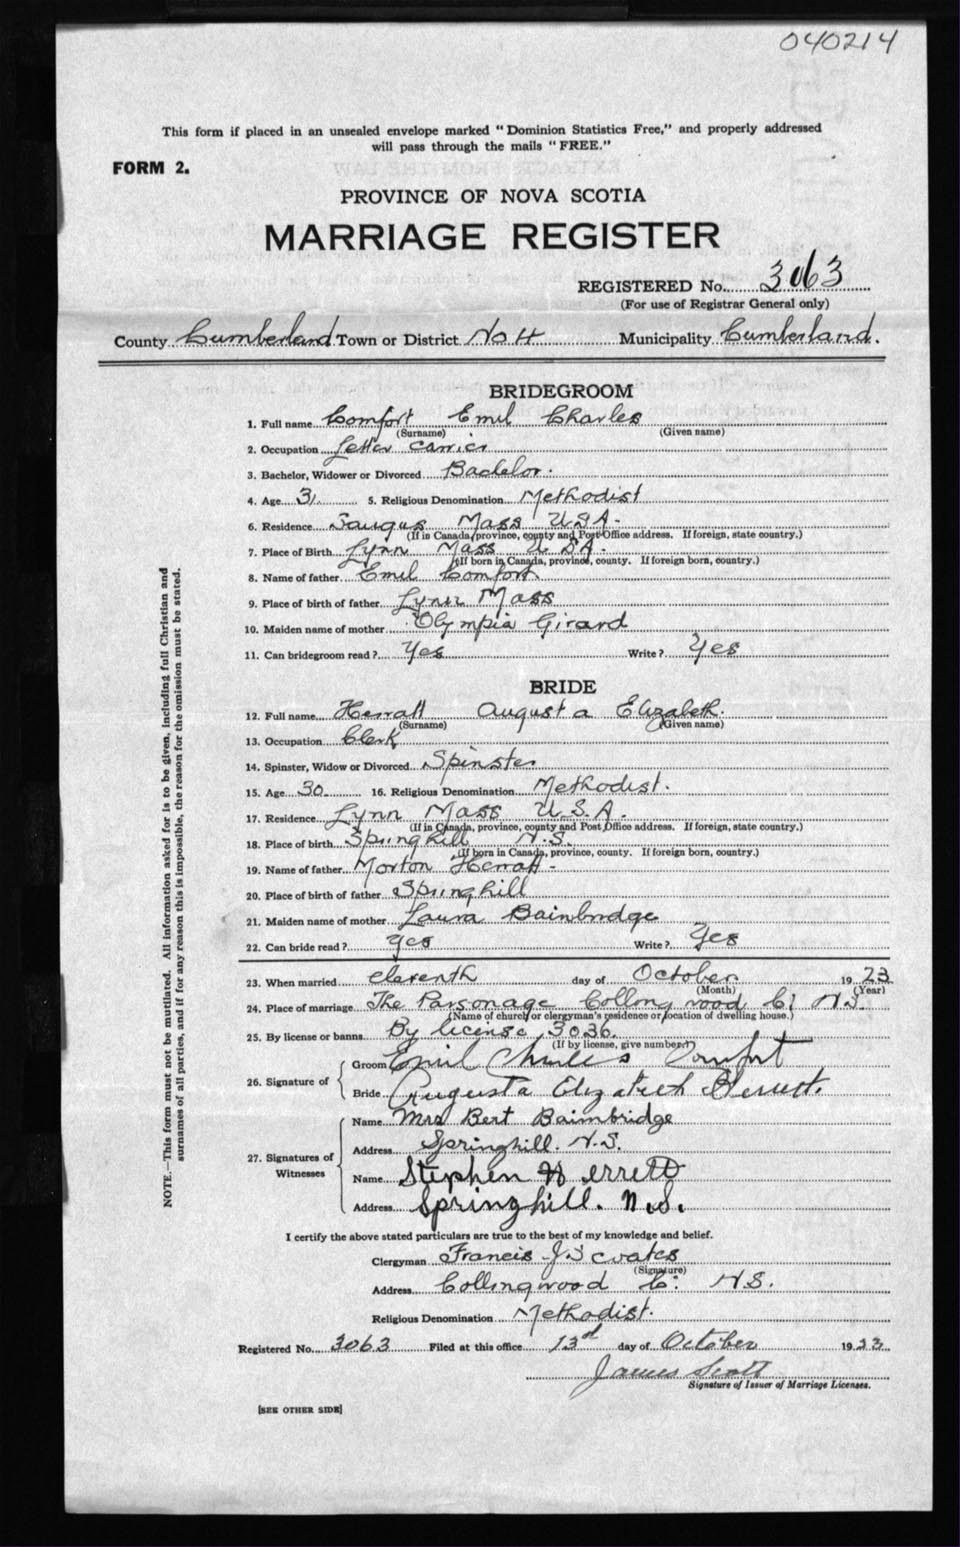 040214
This form if placed in an unsealed envelope marked "Dominion Statistics Free," and properly addressed
will pass through the mails "FREE."
FORM 2.
PROVINCE OF NOVA SCOTIA
MARRIAGE REGISTER
REGISTERED No. 3063
(For use of Registrar General only)
County Cumberland Town or District No 4 Municipality Cumberland.
BRIDEGROOM
1. Full name Comfort Emil Charles
(Surname) (Given name)
2. Occupation Letter Carrier
3. Bachelor, Widower or Divorced Bachelor.
4. Age 31. 5. Religious Denomination Methodist
6. Residence Saugus Mass USA.
(If in Canada, province, county and Post Office address. If foreign, state country.)
7. Place of Birth Lynn Mass U SA.
(If born in Canada, province, county. If foreign born, country.)
8. Name of father Emil Comfort
9. Place of birth of father Lynn Mass
10. Maiden name of mother Olympia Girard
11. Can bridegroom read? Yes Write? Yes
BRIDE
12. Full name Herratt Augusta Elizabeth.
(Surname) (Given name)
13. Occupation Clerk
14. Spinster, Widow or Divorced Spinster
15. Age 30 16. Religious Denomination Methodist.
17. Residence Lynn Mass U.S.A.
(If in Canada, province, county and Post Office address. If foreign, state country.)
18. Place of birth Springhill N.S.
(If born in Canada, province, county. If foreign born, country.)
19. Name of father Morton Herratt.
20. Place of birth of father Springhill
21. Maiden name of mother Laura Bainbridge
22. Can bride read? yes Write? Yes
23. When married eleventh day of October 1923
(Month) (Year)
24. Place of marriage The Parsonage Collingwood C. N.S.
(Name of church or clergyman's residence or location of dwelling house.)
25. By license or banns By license 3036.
(If by license, give number.)
26. Signature of Groom Emil Charles Comfort
Bride Augusta Elizabeth Herrett.
27. Signatures of Witnesses
Name Mrs Bert Baimbridge
Address Springhill. N.S.
Name Stephen Herrett
Address Springhill. N.S.
I certify the above stated particulars are true to the best of my knowledge and belief.
Clergyman Francis J.
(Signature)
Address Collingwood C. N.S.
Religious Denomination Methodist.
Registered No. 3063 Filed at this office 13d day of October 1923
James Scott
Signature of Issuer of Marriage Licenses.
[SEE OTHER SIDE]
NOTE.—This form must not be mutilated. All information asked for is to be given, including full Christian and
surnames of all parties, and if for any reason this is impossible, the reason for the omission must be stated.